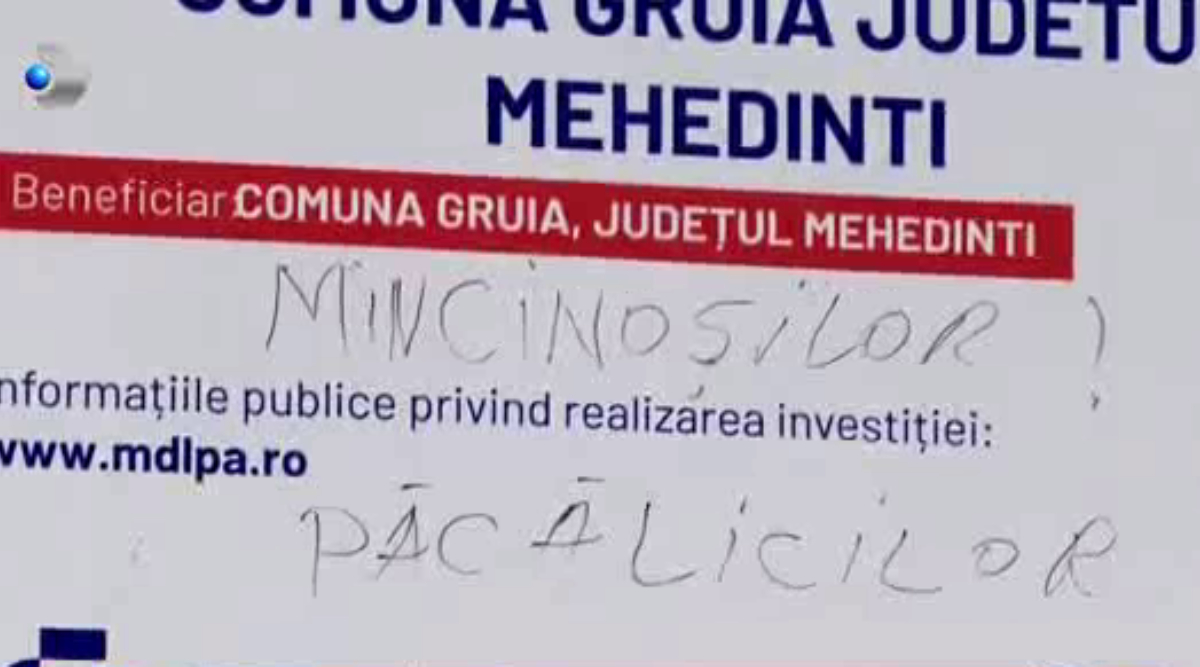 COMUNA GRUIA JUDETU
MEHEDINTI
Beneficiar: COMUNA GRUIA, JUDEȚUL MEHEDINTI
MINCINOȘILOR !
nformațiile publice privind realizarea investiției:
www.mdlpa.ro
PĂCĂLICILOR